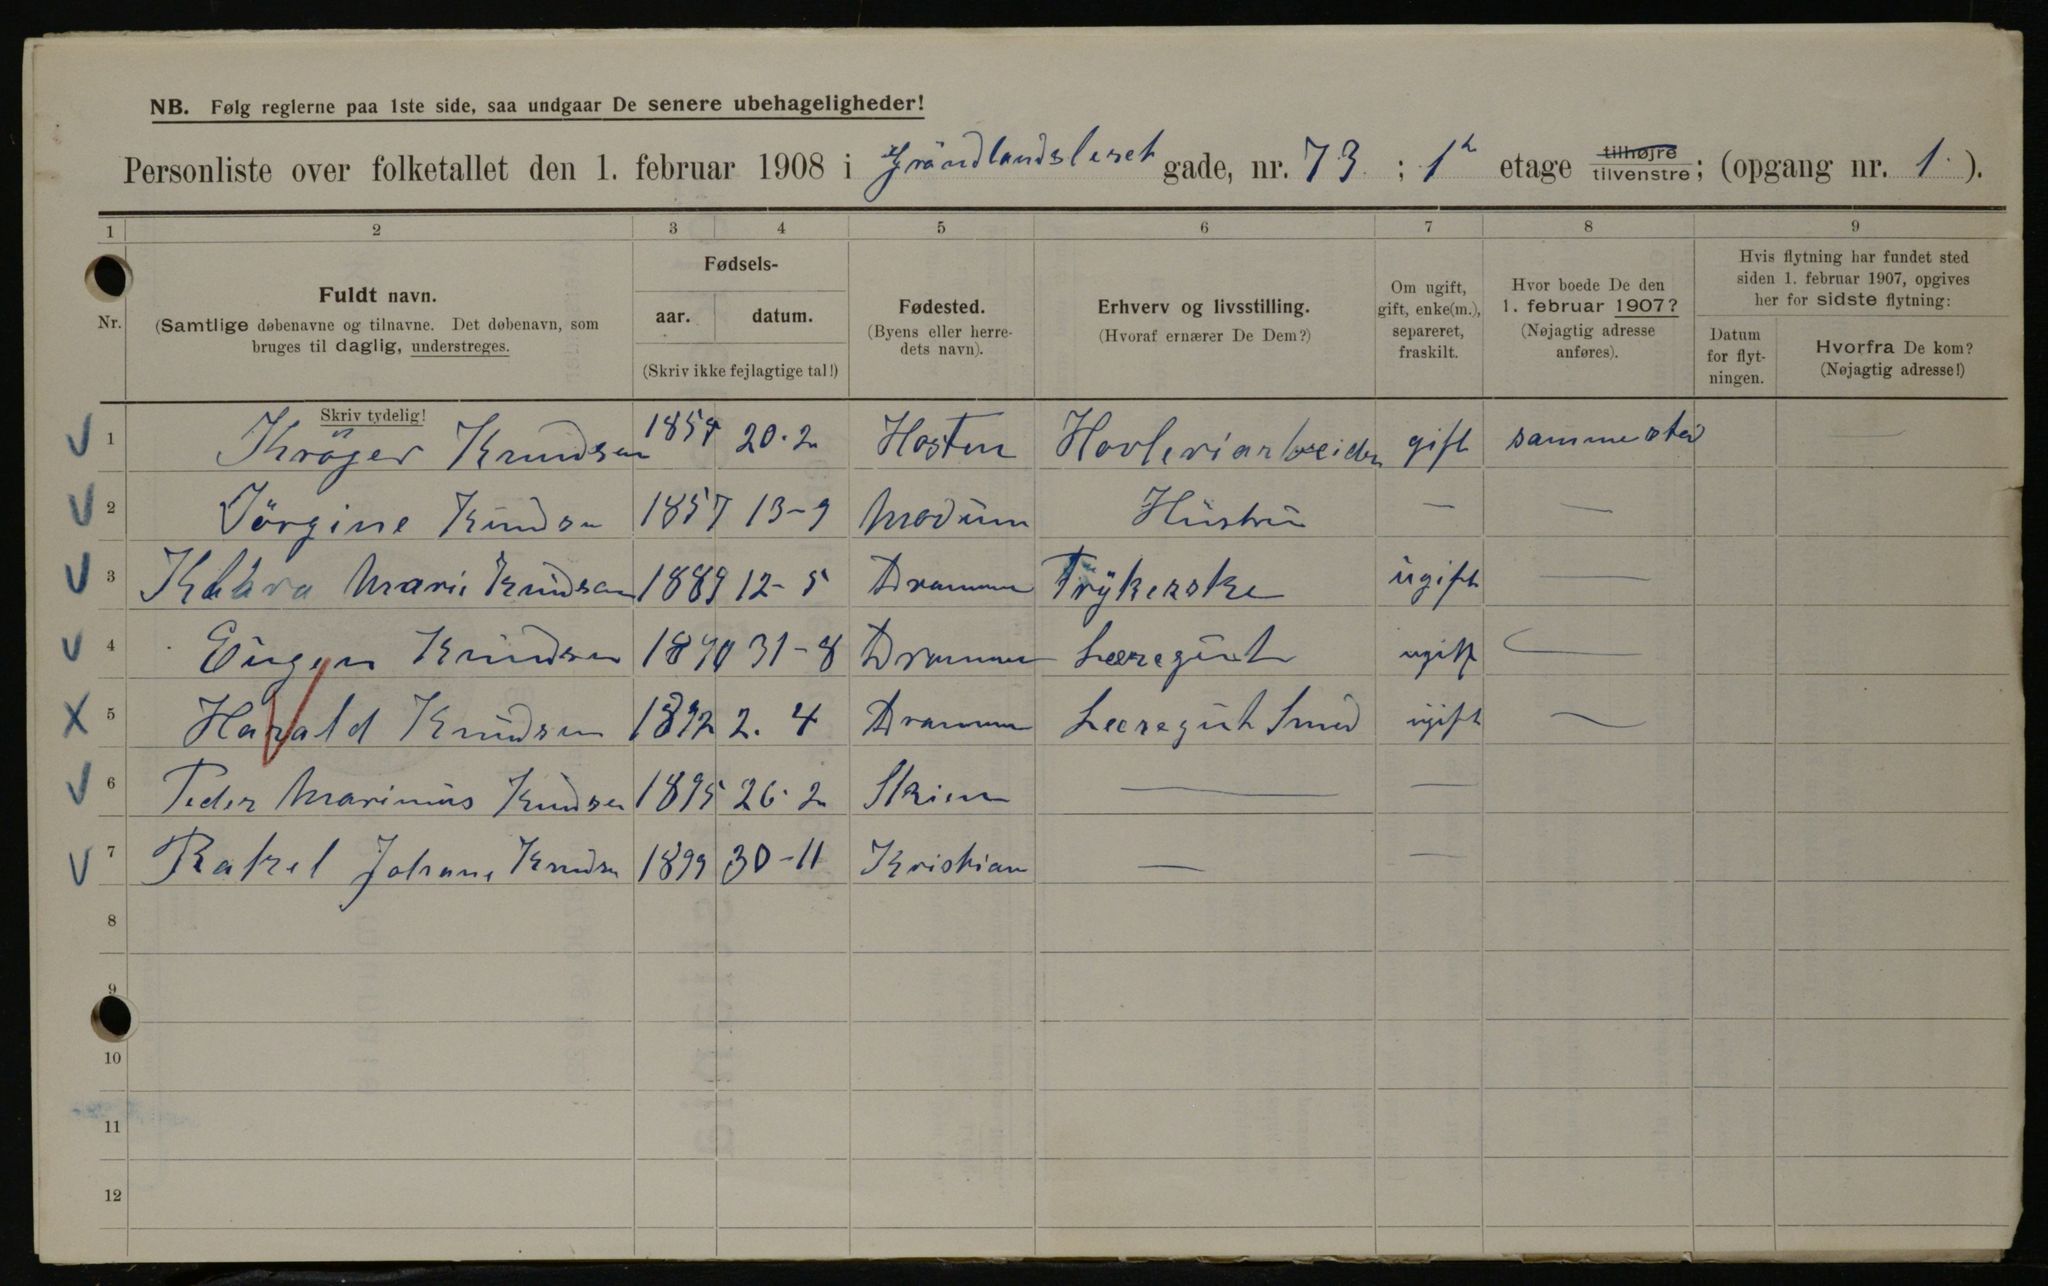 NB. Følg reglerne paa 1ste side, saa undgaar De senere ubehageligheder!
Personliste over folketallet den 1. februar 1908 i Gröndlandsleret gade, nr. 73 ; 1ᵗ etage tilhøjre tilvenstre; (opgang nr. 1. ).
1 2 3 4 5 6 7 8 9
Nr.
Fuldt navn.
(Samtlige døbenavne og tilnavne. Det døbenavn, som
bruges til daglig, understreges.
Skriv tydelig!
Fødsels-
aar. datum.
(Skriv ikke fejlagtige tal!)
Fødested.
(Byens eller herre-
dets navn).
Erhverv og livsstilling.
(Hvoraf ernærer De Dem?)
Om ugift,
gift, enke(m.),
separeret,
fraskilt.
Hvor boede De den
1. februar 1907?
(Nøjagtig adresse
anføres).
Hvis flytning har fundet sted
siden 1. februar 1907, opgives
her for sidste flytning:
Datum
for flyt-
ningen.
Hvorfra De kom?
(Nøjagtig adresse!)
1 Kröger Knudsen 20.2 Hosten Hovleriarbeider gift sammested —
2 Jörgine Knudsen 1857 13-9 Modum Hustru — —
3 Klara Marie Knudsen 1889 12-5 Drammen Trykerske ugift —
4 Eugen Knudsen 1890 31-8 Drammen Læregut ugift —
5 Harald Knudsen 1892 2.4 Drammen Læregut Smed ugift —
6 Peder Marinius Knudsen 1895 26.2 Skien — —
7 Rakel Johane Knudsen 1899 30-11 Kristian — —
8
9
10
11
12